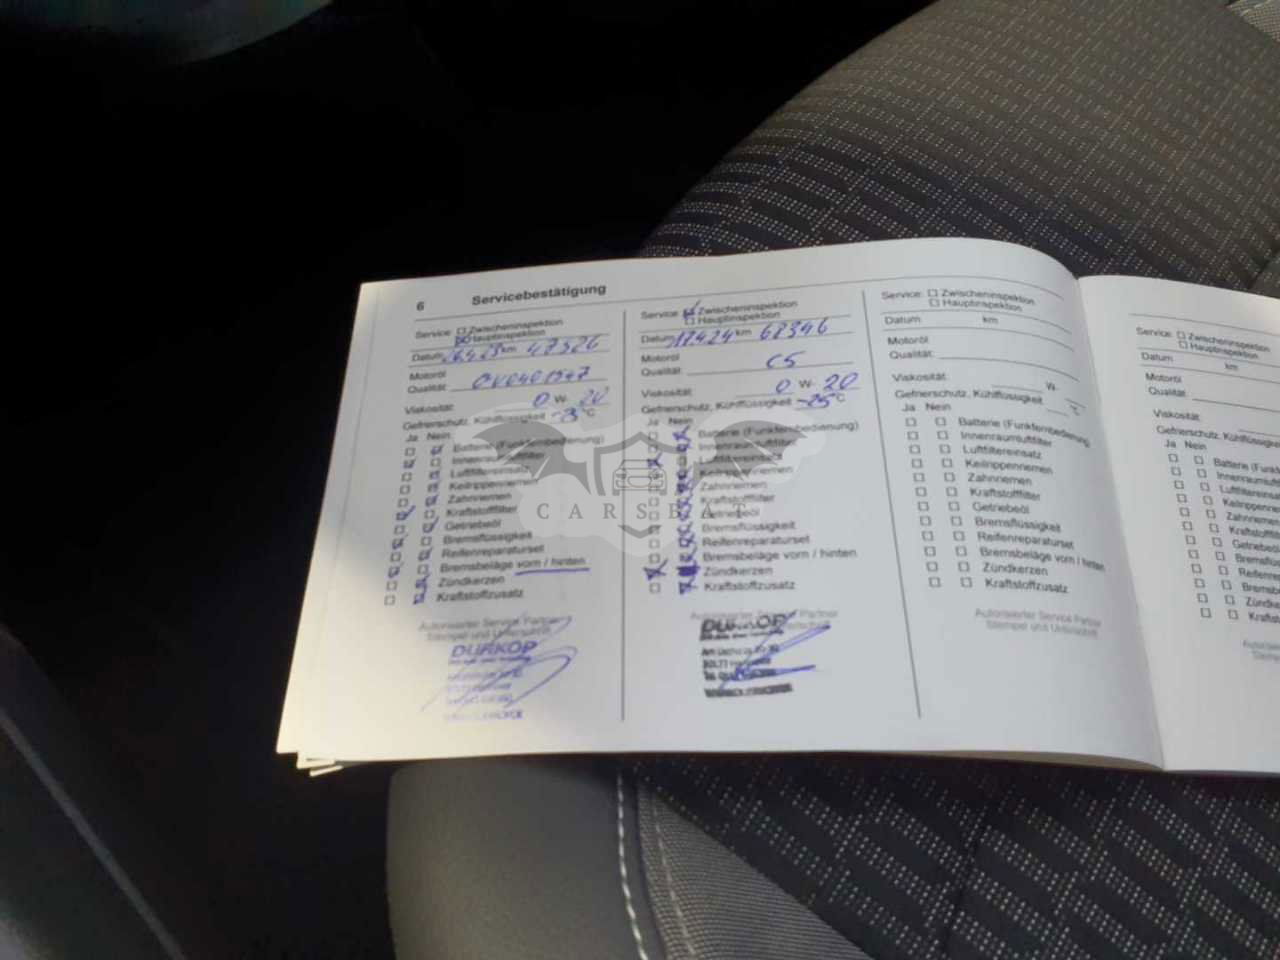 6 Servicebestätigung
Service: Zwischeninspektion
Hauptinspektion
Datum 26.4.23 km 47526
Motoröl
Qualität: OV0401547
Viskosität: 0 W- 20
Gefrierschutz, Kühlflüssigkeit -25 °C
Ja Nein
Batterie (Funkfernbedienung)
Innenraumluftfilter
Luftfiltereinsatz
Keilrippenriemen
Zahnriemen
Kraftstofffilter
Getriebeöl
Bremsflüssigkeit
Reifenreparaturset
Bremsbeläge vorn / hinten
Zündkerzen
Kraftstoffzusatz
Autorisierter Service Partner
Stempel und Unterschrift
DÜRKOP
Service: Zwischeninspektion
Hauptinspektion
Datum 17.4.24 km 67346
Motoröl
Qualität: C5
Viskosität: 0 W- 20
Gefrierschutz, Kühlflüssigkeit -25 °C
Ja Nein
Batterie (Funkfernbedienung)
Innenraumluftfilter
Luftfiltereinsatz
Keilrippenriemen
Zahnriemen
Kraftstofffilter
Getriebeöl
Bremsflüssigkeit
Reifenreparaturset
Bremsbeläge vorn / hinten
Zündkerzen
Kraftstoffzusatz
Autorisierter Service Partner
DÜRKOP
Service: Zwischeninspektion
Hauptinspektion
Datum km
Motoröl
Qualität:
Viskosität: W-
Gefrierschutz, Kühlflüssigkeit °C
Ja Nein
Batterie (Funkfernbedienung
Innenraumluftfilter
Luftfiltereinsatz
Keilrippenriemen
Zahnriemen
Kraftstofffilter
Getriebeöl
Bremsflüssigkeit
Reifenreparaturset
Bremsbeläge vorn / hinten
Zündkerzen
Kraftstoffzusatz
Autorisierter Service Partner
Stempel und Unterschrift
Service: Zwischeninspektion
Hauptinspektion
Datum km
Motoröl
Qualität:
Viskosität:
Gefrierschutz, Kühlflüssigkeit
Ja Nein
Batterie (Funkf
Innenraumluft
Luftfiltereinsat
Keilrippenrie
Zahnriemen
Kraftstofff
Getriebeö
Bremsflü
Reifenre
Bremsb
Zündke
Krafts
CARSBAT